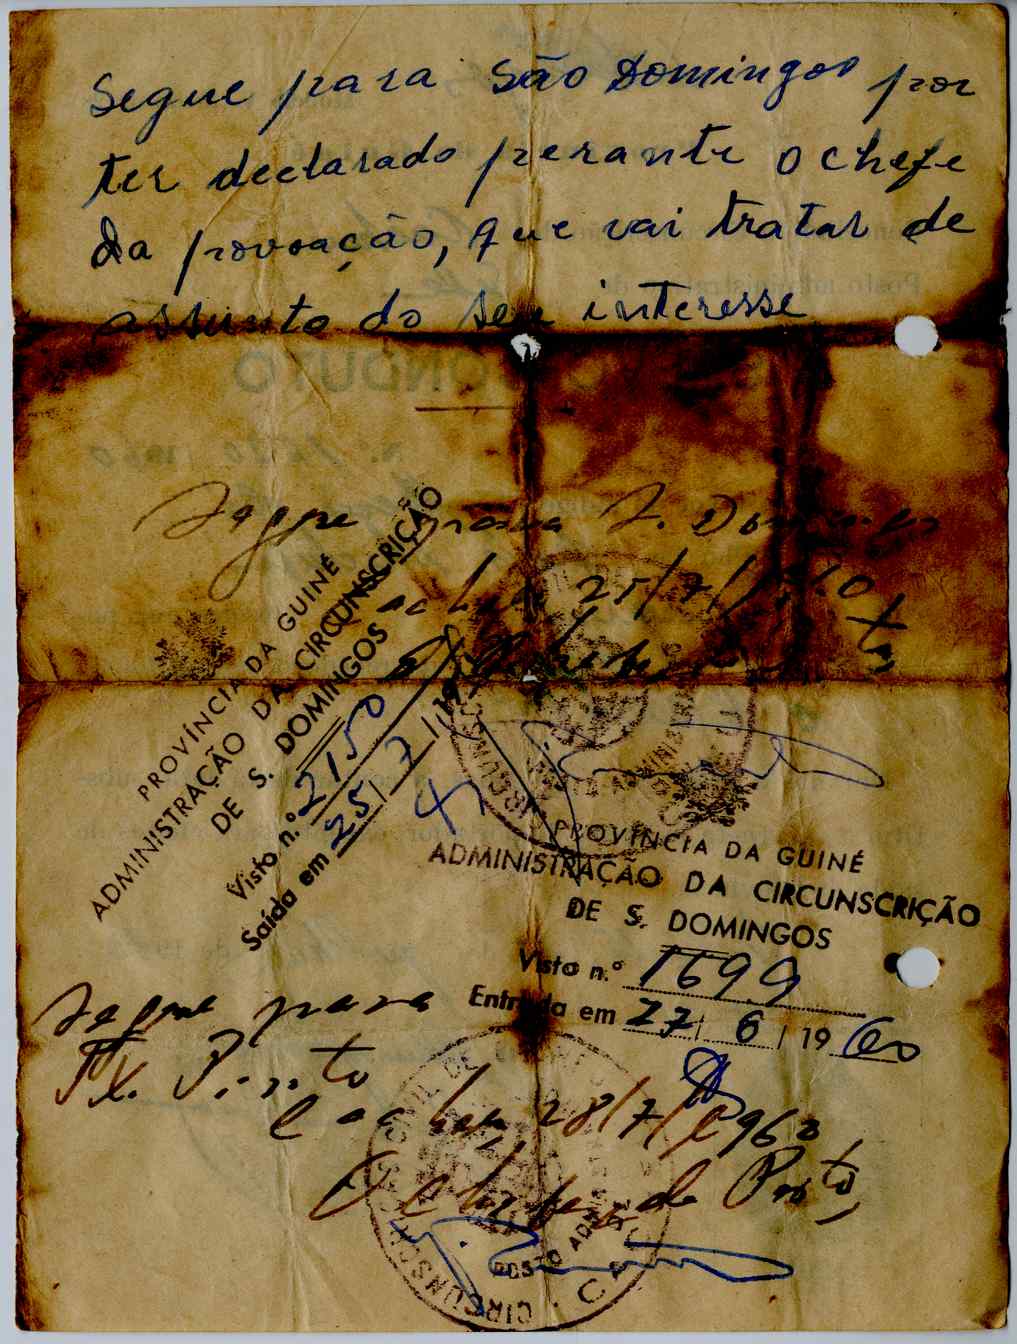 Segue para São Domingos por
ter declarado perante o chefe
da povoação, que vai tratar de
assunto do seu interesse
Segue para S. Domingos
25/7/1960
PROVÍNCIA DA GUINÉ
ADMINISTRAÇÃO DA CIRCUNSCRIÇÃO
DE S. DOMINGOS
Visto n.º 2150
Saída em 25/7/19
PROVÍNCIA DA GUINÉ
ADMINISTRAÇÃO DA CIRCUNSCRIÇÃO
DE S. DOMINGOS
Visto n.º 1699
Entrada em 27/6/1960
Segue para
Tx. Pinto
Cacheu 28/7/1960
O Chefe do Posto,
POSTO ADM